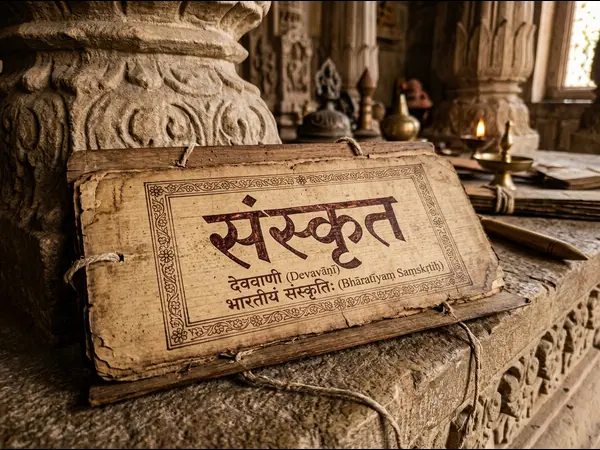 संस्कृत
देववाणी (Devavāṇī)
भारतीयं संस्कृतिः (Bhāratīyaṃ Saṃskṛtiḥ)